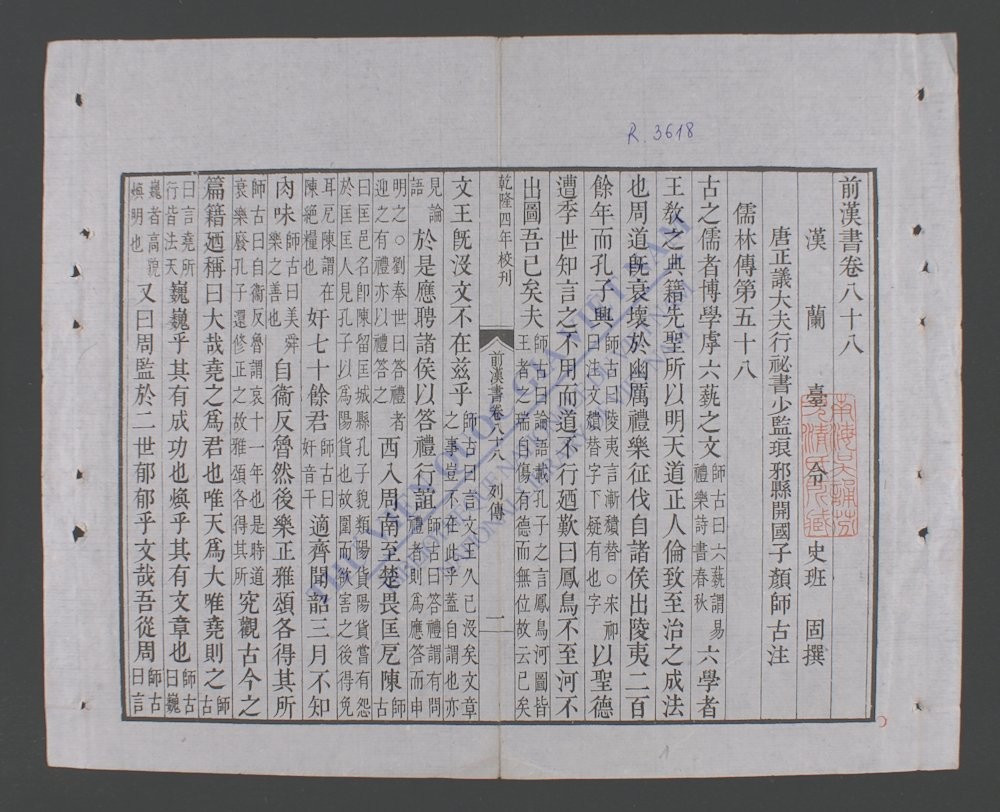 R. 3618
前漢書卷八十八
漢蘭臺令史班固撰
唐正議大夫行祕書少監琅邪縣開國子顏師古注
儒林傳第五十八
古之儒者博學虖六藝之文師古曰六藝謂易禮樂詩書春秋六學者
王教之典籍先聖所以明天道正人倫致至治之成法
也周道旣衰壞於幽厲禮樂征伐自諸侯出陵夷二百
餘年而孔子興師古曰陵夷言漸積替○宋祁曰注文積替字下疑有也字以聖德
遭季世知言之不用而道不行廼歎曰鳳鳥不至河不
出圖吾已矣夫師古曰論語載孔子之言鳳鳥河圖皆王者之瑞自傷有德而無位故云已矣
乾隆四年校刊
前漢書卷八十八 列傳
一
文王旣沒文不在茲乎師古曰言文王久已沒矣文章之事豈不在此乎蓋自謂也亦
見論語於是應聘諸侯以答禮行誼師古曰答禮謂有問禮者則爲應答而申
明之○劉奉世曰答禮者迎之有禮亦以禮答之西入周南至楚畏匡戹陳師古
曰匡邑名卽陳留匡城縣孔子貌類陽貨陽貨嘗有怨於匡匡人見孔子以爲陽貨也故圍而欲害之後得免
耳戹陳謂在陳絕糧也奸七十餘君師古曰奸音干適齊聞韶三月不知
肉味師古曰美舜樂之善也自衞反魯然後樂正雅頌各得其所
師古曰自衞反魯謂哀十一年也是時道衰樂廢孔子還修正之故雅頌各得其所究觀古今之
篇籍廼稱曰大哉堯之爲君也唯天爲大唯堯則之師古
曰言堯所行皆法天巍巍乎其有成功也煥乎其有文章也師古曰巍
巍者高貌煥明也又曰周監於二世郁郁乎文哉吾從周師古曰言
THU VIEN QUOC GIA VIET NAM
NATIONAL LIBRARY OF VIETNAM